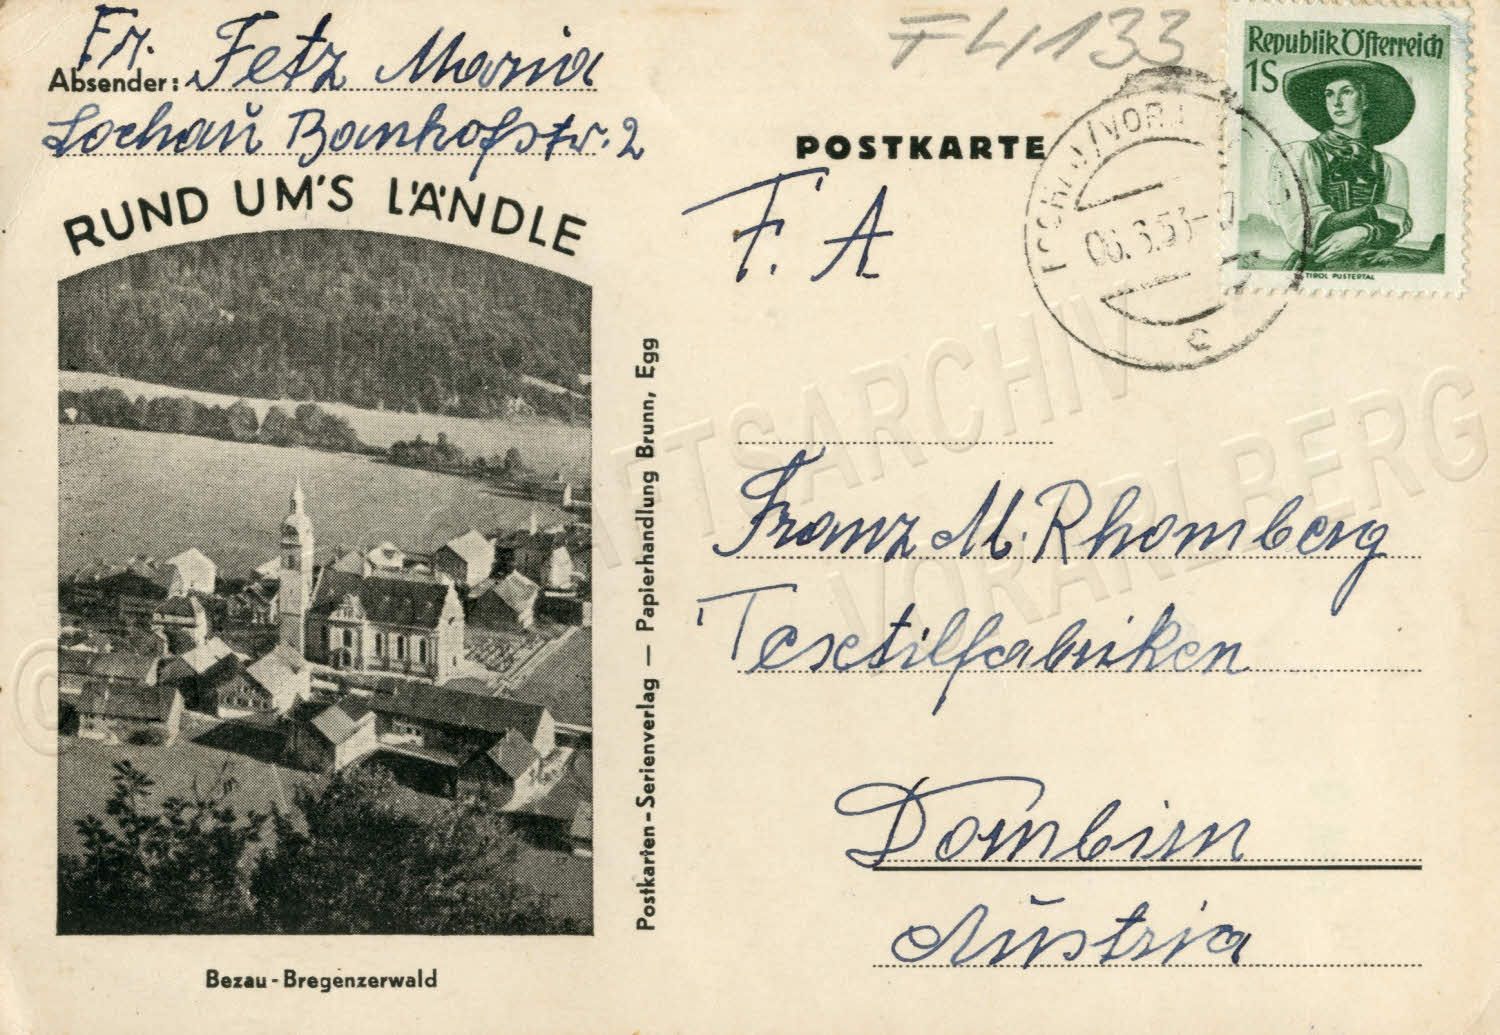 Fr.
Absender: Fetz Maria
Lochau Banhofstr. 2
RUND UM'S LÄNDLE
Bezau - Bregenzerwald
Postkarten-Serienverlag — Papierhandlung Brunn, Egg
F 4/133
POSTKARTE
F. A
Republik Österreich
1S
TIROL PUSTERTAL
06.3.53-
c
Franz M. Rhomberg
Textilfabriken
Dornbirn
Austria
©
SARCHIV
VORARLBERG